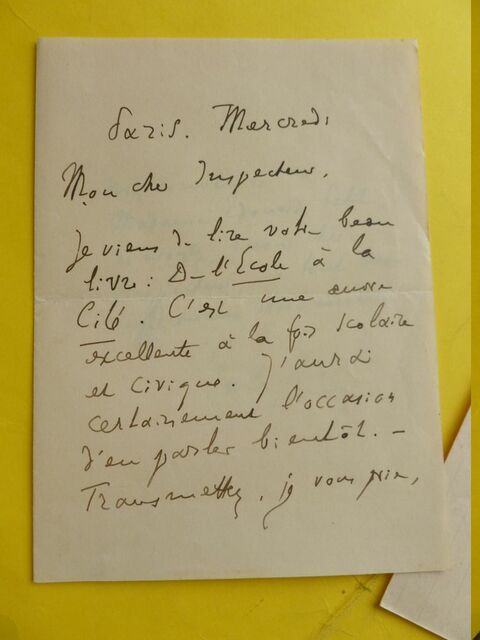 Paris. Mercredi
Mon cher Inspecteur,
Je viens de lire votre beau
livre : De l'Ecole à la
Cité. C'est une œuvre
excellente à la fois scolaire
et civique. J'aurai
certainement l'occasion
d'en parler bientôt. –
Transmettez, je vous prie,